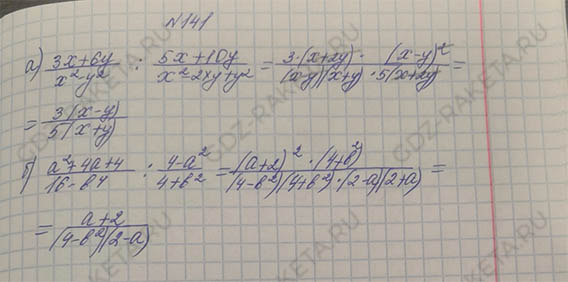 №141
а) (3x+6y)/(x²-y²) : (5x+10y)/(x²-2xy+y²) = (3·(x+2y)·(x-y)²)/((x-y)(x+y)·5(x+2y)) =
= (3(x-y))/(5(x+y))
б) (a²+4a+4)/(16-b⁴) : (4-a²)/(4+b²) = ((a+2)²·(4+b²))/((4-b²)(4+b²)·(2-a)(2+a)) =
= (a+2)/((4-b²)(2-a))
GDZ-RAKETA.RU